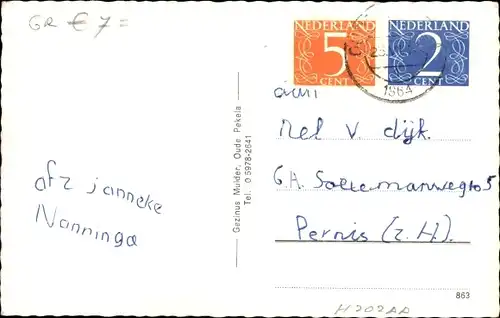 GR € 7 =
NEDERLAND
5
CENT
NEDERLAND
2
CENT
1964
aan
Nel v. dijk.
G.A. Soetemanweg 105
Pernis (z.H).
afz janneke
Nanninga
Gezinus Mulder, Oude Pekela
Tel. 0 5978-2641
863
H202AA